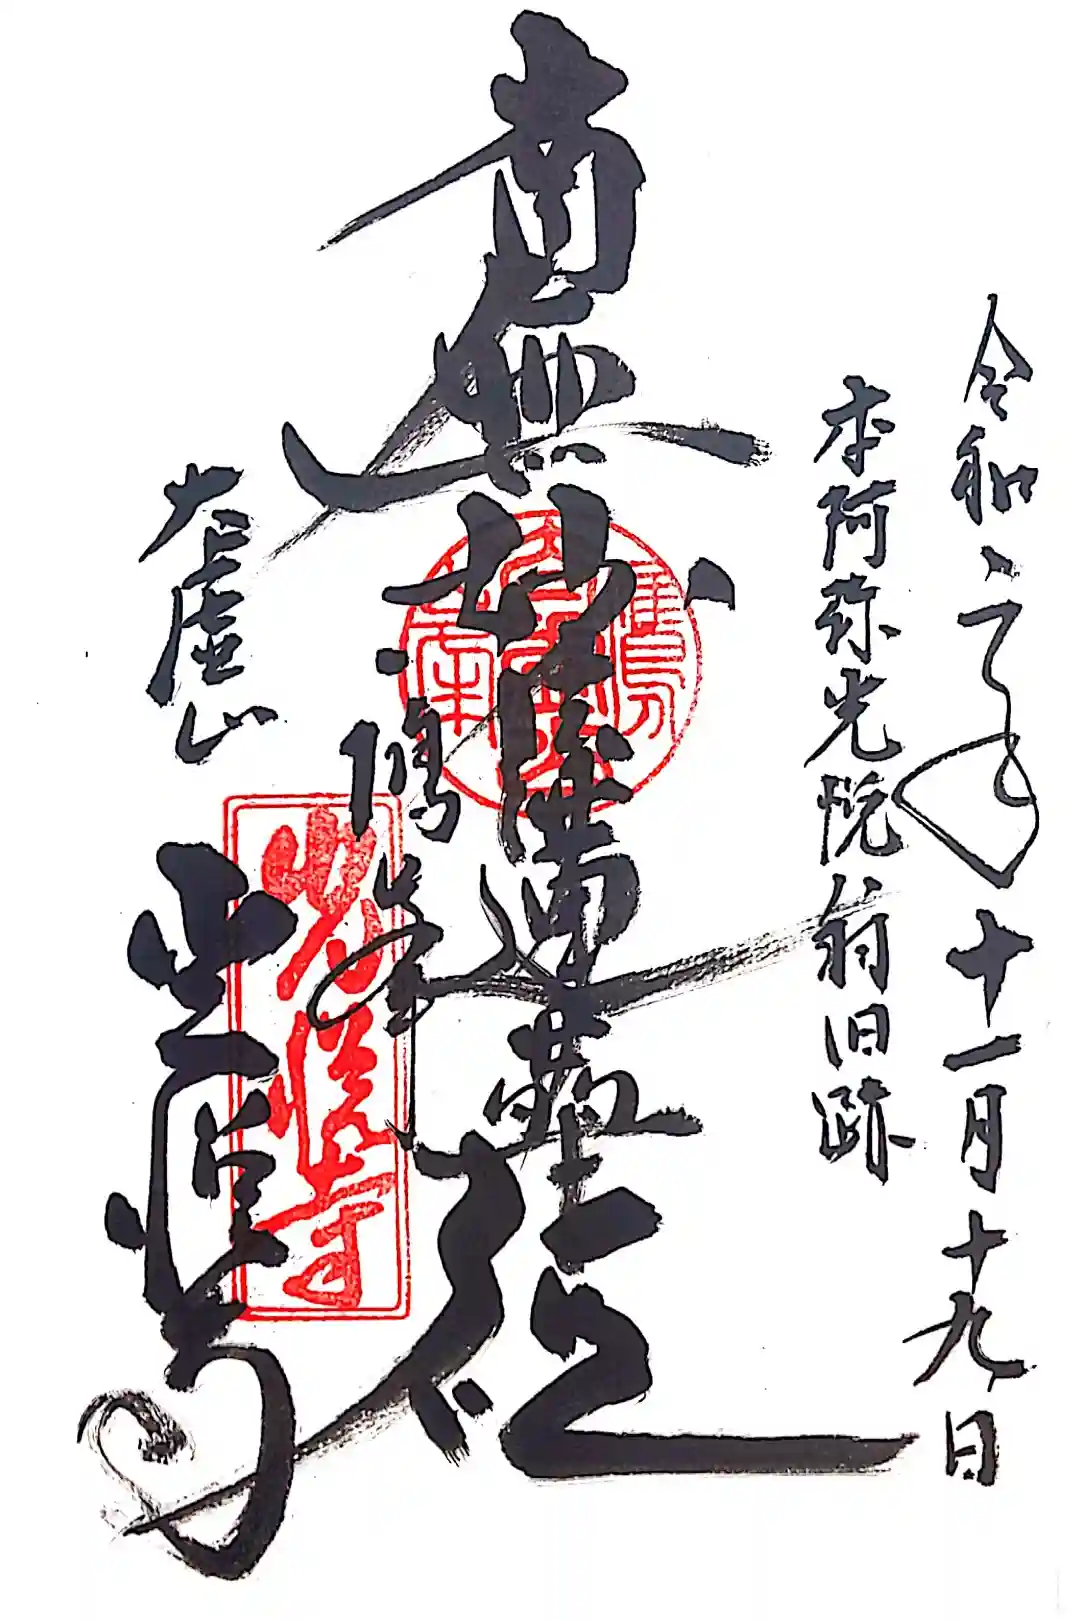 令和元年十一月十九日
本阿弥光悦翁旧跡
南無妙法蓮華経
鷹峯
大虚山
光悦寺
光悦寺